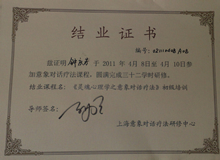 结业证书
编号:
兹证明 于 2011 年 4 月8日至 4 月10日参
加意象对话疗法课程,圆满完成三十二学时研修。
结业课程名:《灵魂心理学之意象对话疗法》初级培训
导师签名:
上海意象对话疗法研修中心